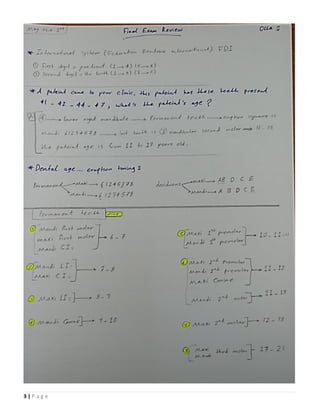 May the 3rd
Final Exam Review
* International system (Fédération Dentaire internationale) FDI
① First digit = quadrant (1→4) (5→8)
② Second digit = the tooth (1→8) (1→5)
* A patient came to your clinic, this patient has these teeth present
41 - 42 - 44 - 47, what's the patient's age?
4 → lower right mandible → Permanent teeth → eruption sequence is
Mandi 61245378 → last tooth is 7 mandibular second molar → 11-13
the patient age is from 11 to 13 years old.
* Dental age... eruption timing:
Permanent Maxi → 61245378
Mandi → 61234578
deciduous Maxi → AB D C E
Mandi → A B D C E
Permanent teeth
Mandi first molar
Maxi first molar
Mandi CI
6 - 7
Mandi LI
Maxi CI
7 - 8
Maxi LI
8 - 9
Mandi Canine
9 - 10
Maxi 1st premolar
Mandi 1st premolar
10 - 11
Maxi 2nd Premolar
Mandi 2nd premolar
Maxi Canine
11 - 12
Mandi 2nd molar
11 - 13
Maxi 2nd molar
12 - 13
Maxi
Mandi third molar
17 - 21
3 | Page